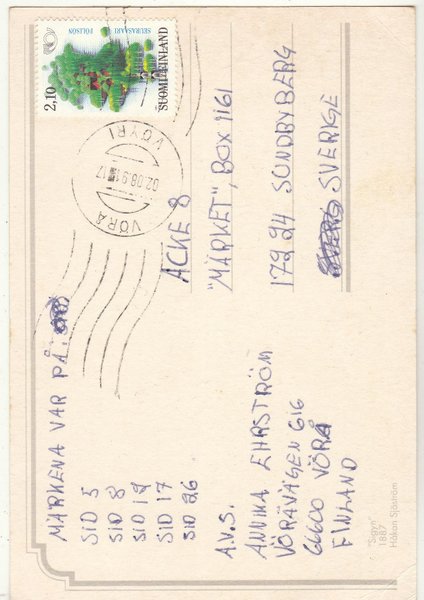 MÄRKENA VAR PÅ:
SID 5
SID 8
SID 12
SID 17
SID 26
A.V.S.
ANNIKA EHRSTRÖM
VÖRÅVÄGEN 616
66600 VÖRÅ
FINLAND
"Sigyn"
1887
Håkan Sjöström
SEURASAARI
FÖLISÖN
2,10
SUOMI FINLAND
VÖYRI
VÖRÅ
ACKE 8
"MÄRKET", BOX 1161
172 24 SUNDBYBERG
SVERIGE